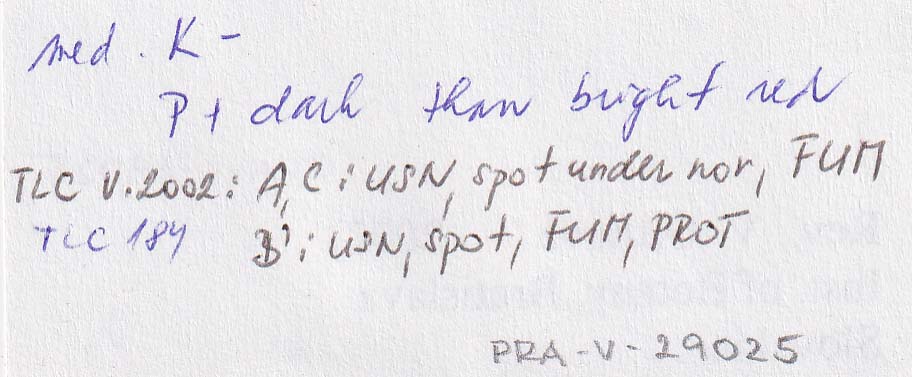 med. K-
P+ dark than bright red
TLC V.2002: A,C: USN, spot under nor, FUM
TLC 184 B': USN, spot, FUM, PROT
PRA-V-29025